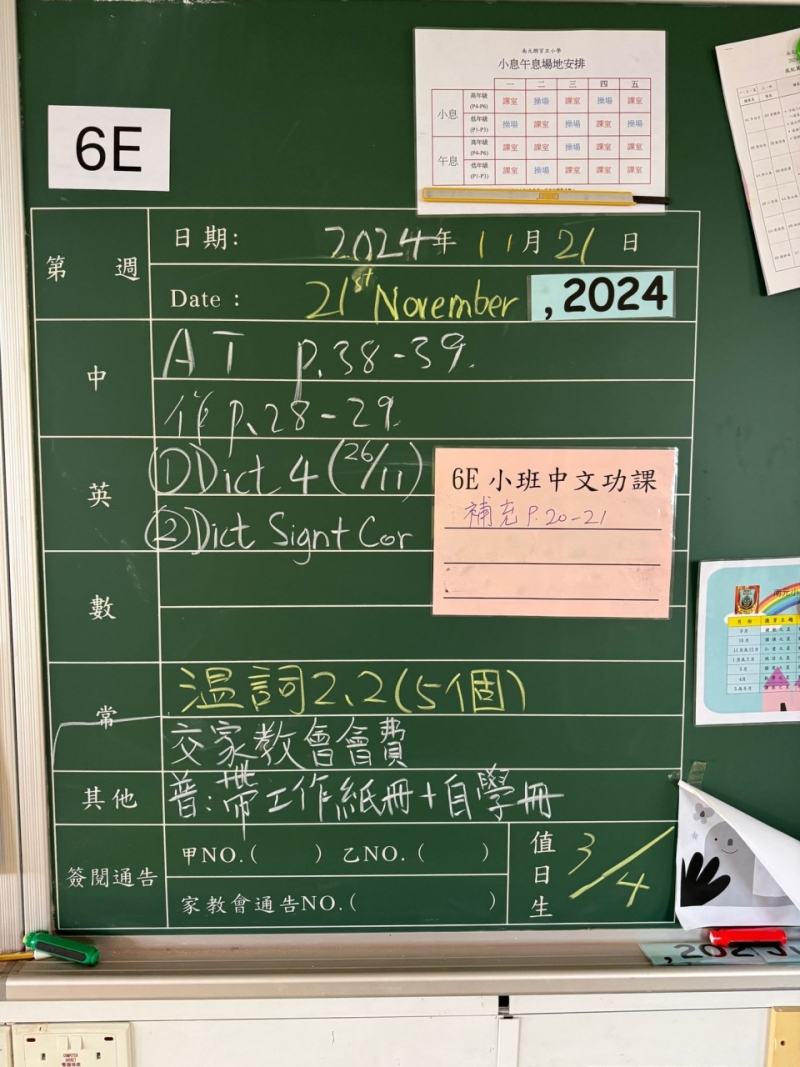 6E
小息午息場地安排
一 二 三 四 五
小息 高年級 (P4-P6) 課室 操場 課室 操場 課室
低年級 (P1-P3) 操場 課室 操場 課室 操場
午息 高年級 (P4-P6) 課室 課室 課室 課室 課室
低年級 (P1-P3) 課室 操場 課室 課室 課室
第 週
日期: 2024年 11月 21 日
Date : 21st November , 2024
中
AT p.38-39.
作 p.28-29.
英
①Dict 4 (26/11)
②Dict Signt Cor
6E 小班中文功課
補充 P.20-21
數
常
溫詞2.2(5個)
交家教會會費
其他
普:帶工作紙冊+自學冊
簽閱通告
甲NO.( ) 乙NO.( )
家教會通告NO.( )
值日生
3/4